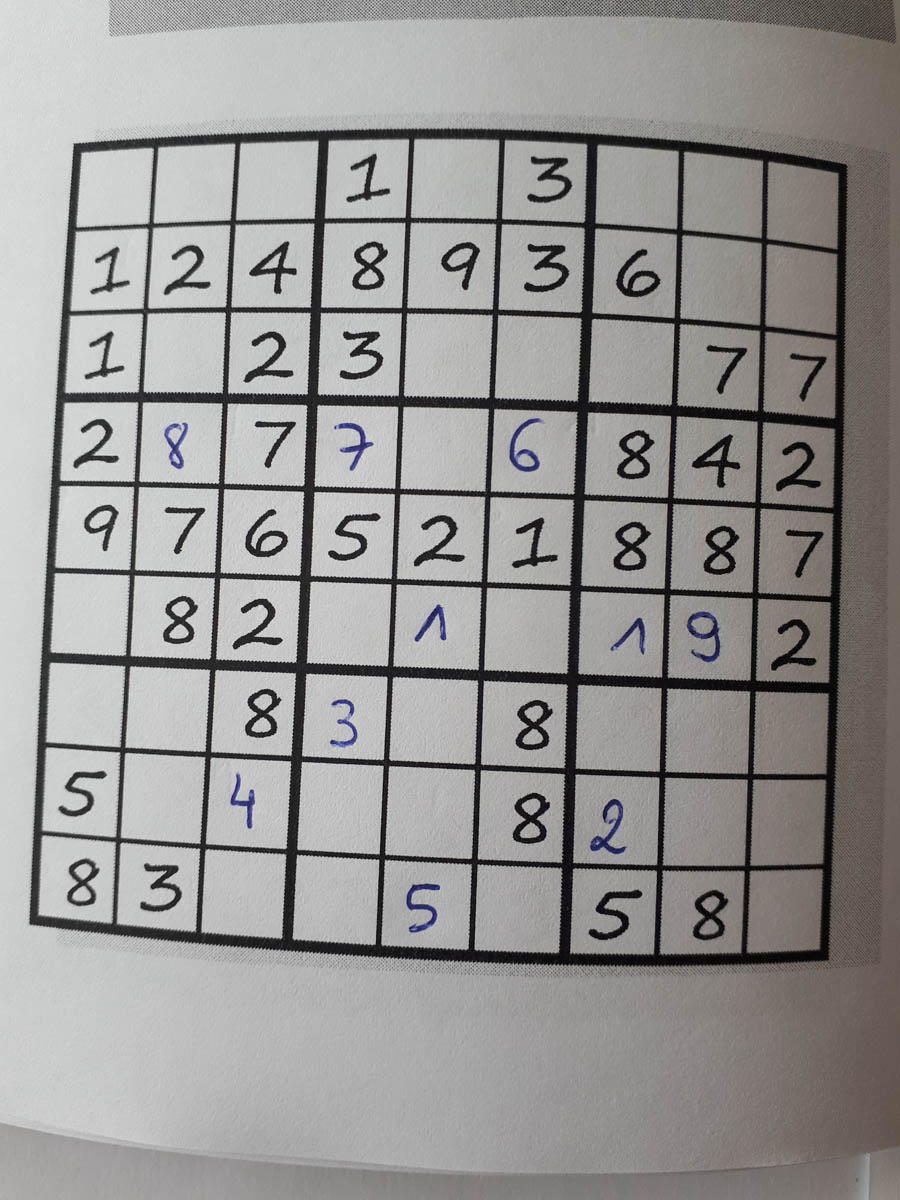 1 3
1 2 4 8 9 3 6
1 2 3 7 7
2 8 7 7 6 8 4 2
9 7 6 5 2 1 8 8 7
8 2 1 1 9 2
8 3 8
5 4 8 2
8 3 5 5 8